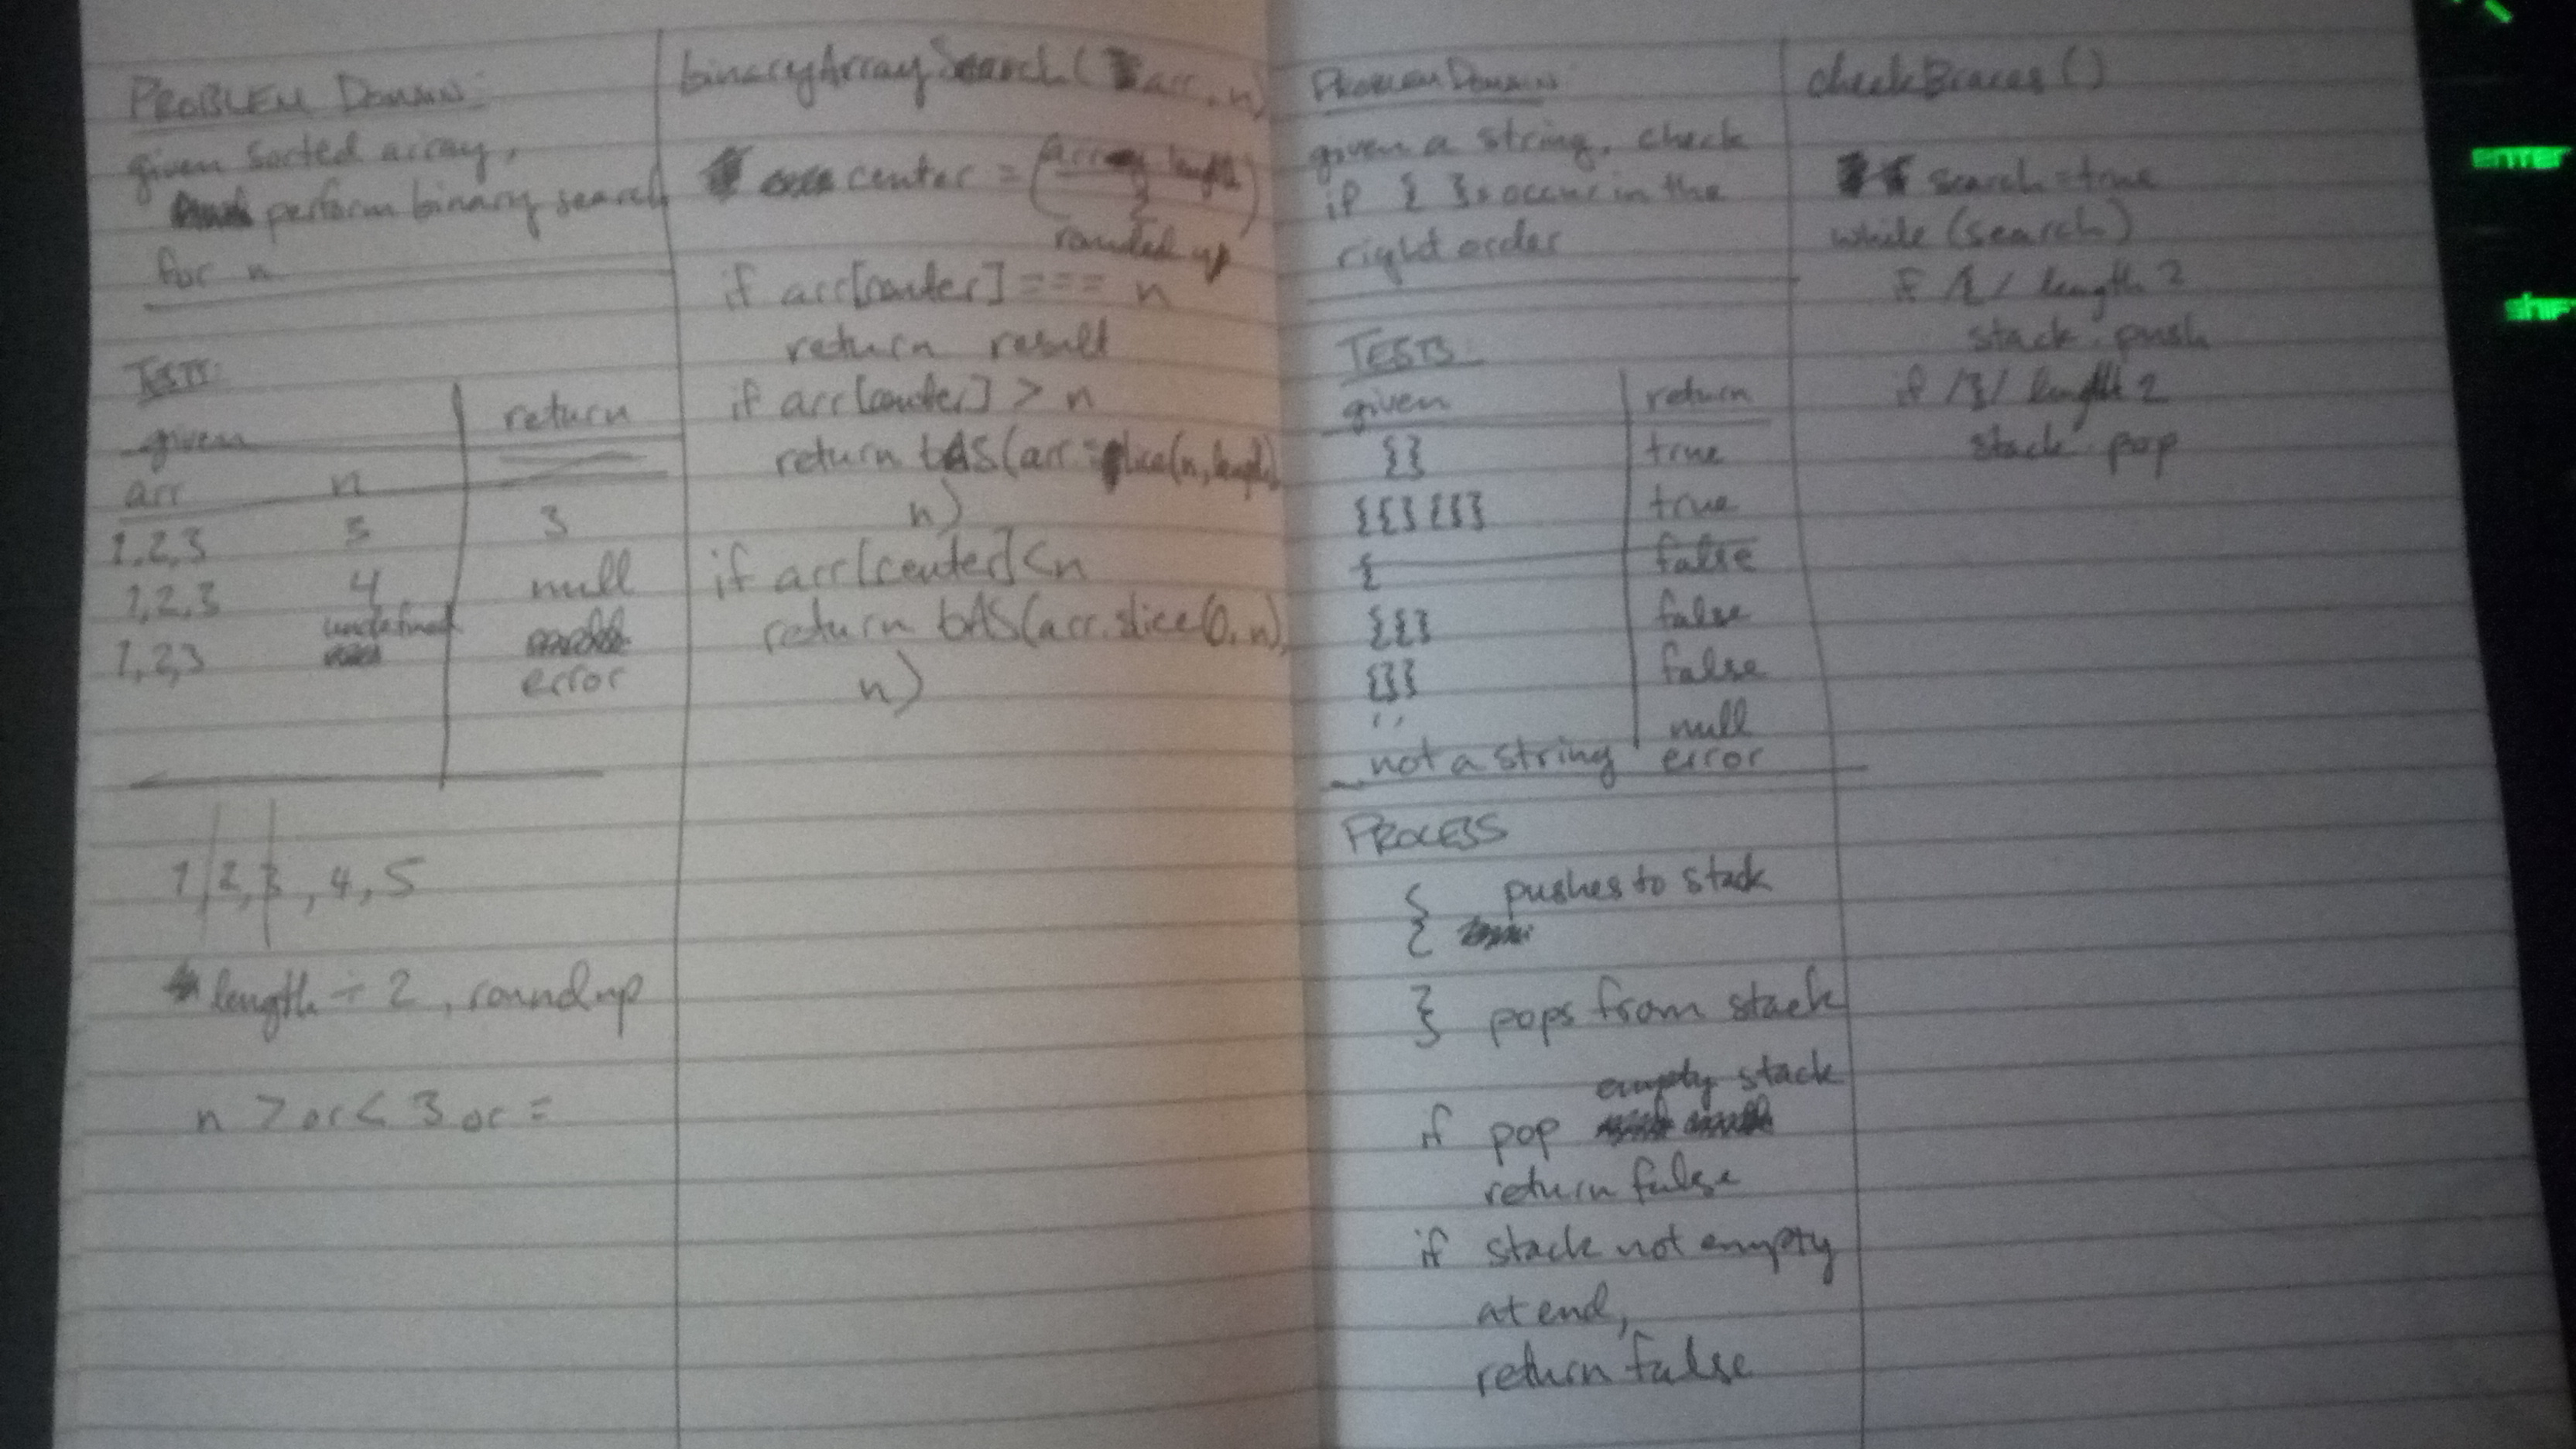 PROBLEM DOMAIN:
given sorted array,
perform binary search
for n
TESTS:
given
return
arr n
1,2,3 3 3
1,2,3 4 null
1,2,3 undefined
error
1,2,3,4,5
length ÷ 2, round up
n > or < 3 or =
binaryArraySearch(arr, n)
center = (array length
2)
rounded up
if arr[center] === n
return result
if arr[center] > n
return bAS(arr.slice(n, length),
n)
if arr[center] < n
return bAS(arr.slice(0, n),
n)
PROBLEM DOMAIN
given a string, check
if { }s occur in the
right order
TESTS
given return
{} true
{{}{}} true
{ false
{{} false
{}} false
'' null
not a string error
PROCESS
{ pushes to stack
} pops from stack
empty stack
if pop
return false
if stack not empty
at end,
return false
checkBraces()
search = true
while (search)
if /{/ length ?
stack.push
if /}/ length ?
stack.pop
enter
shif